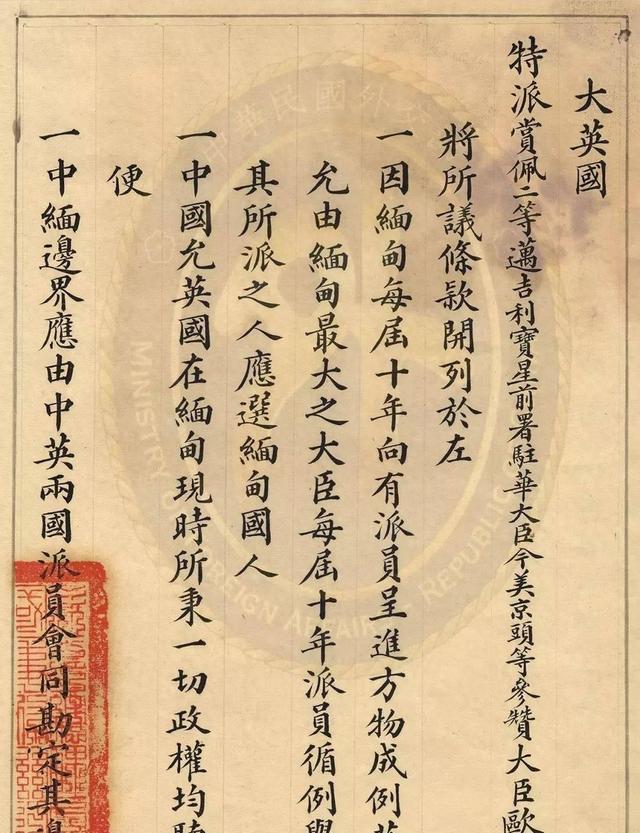 大英國
特派賞佩二等邁吉利寶星前署駐華大臣今美京頭等參贊大臣歐
將所議條款開列於左
一因緬甸每屆十年向有派員呈進方物成例
允由緬甸最大之大臣每屆十年派員循例
其所派之人應選緬甸國人
一中國允英國在緬甸現時所秉一切政權均
便
一中緬邊界應由中英兩國派員會同勘定其邊
中華民國外交
MINISTRY OF FOREIGN AFFAIRS REPUBLIC